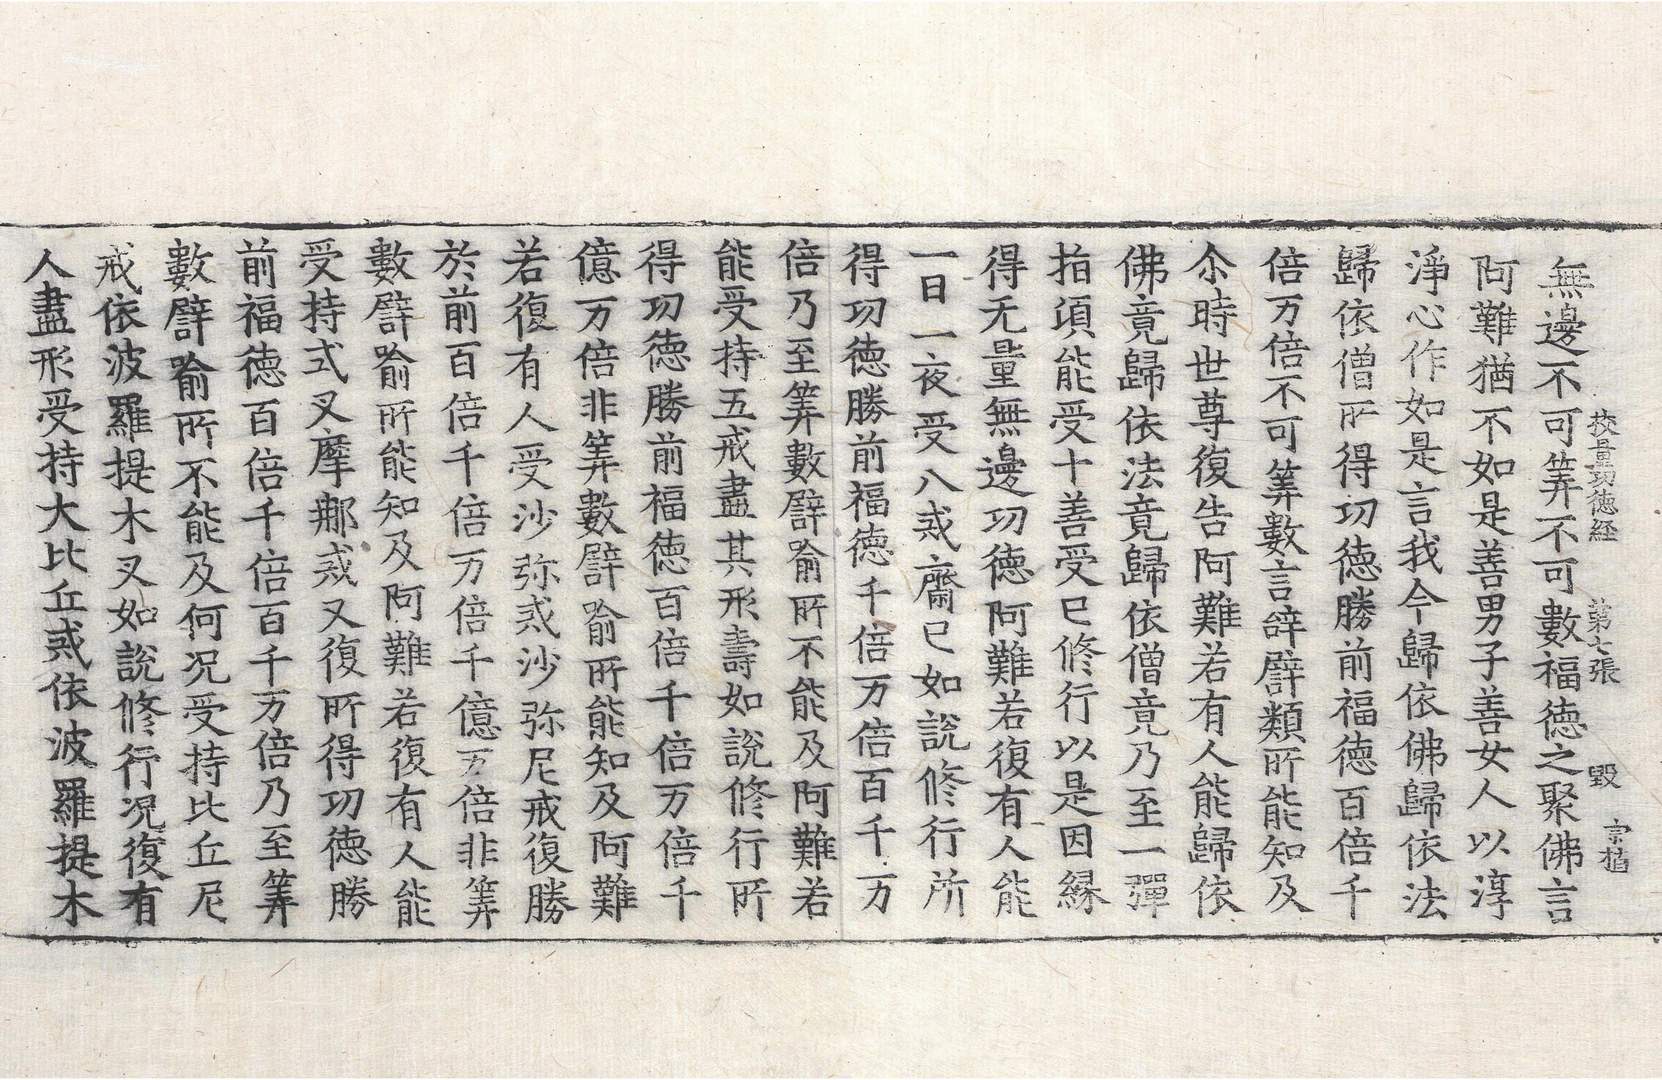 校量功德經 第七張 毀 宗植
無邊不可筭不可數福德之聚佛言
阿難猶不如是善男子善女人以淳
淨心作如是言我今歸依佛歸依法
歸依僧所得功德勝前福德百倍千
倍万倍不可筭數言辝譬類所能知及
尒時世尊復告阿難若有人能歸依
佛竟歸依法竟歸依僧竟乃至一彈
指頃能受十善受已修行以是因緣
得无量無邊功德阿難若復有人能
一日一夜受八戒齋已如說修行所
得功德勝前福德千倍万倍百千万
倍乃至筭數譬喻所不能及阿難若
能受持五戒盡其形壽如說修行所
得功德勝前福德百倍千倍万倍千
億万倍非筭數譬喻所能知及阿難
若復有人受沙弥戒沙弥尼戒復勝
於前百倍千倍万倍千億万倍非筭
數譬喻所能知及阿難若復有人能
受持式叉摩那戒又復所得功德勝
前福德百倍千倍百千万倍乃至筭
數譬喻所不能及何况受持比丘尼
戒依波羅提木叉如說修行况復有
人盡形受持大比丘戒依波羅提木